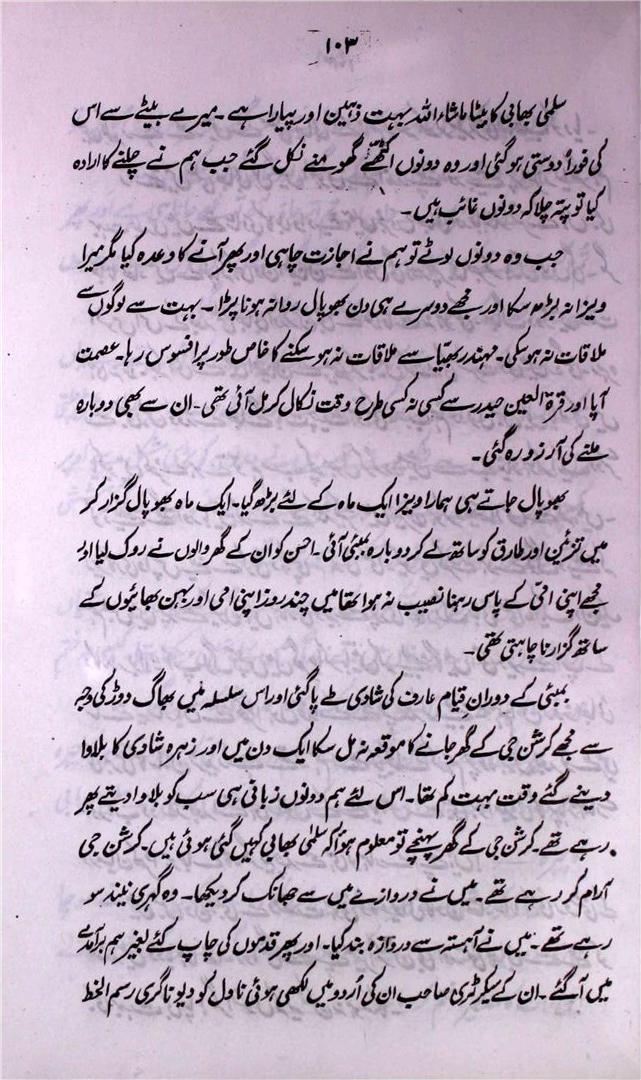 ۱۰۳
سلمیٰ بھابی کا بیٹا ماشاء اللہ بہت ذہین اور پیارا ہے ۔ میرے بیٹے سے اس
کی فوراً دوستی ہو گئی اور وہ دونوں اکٹھے گھومنے نکل گئے جب ہم نے چلنے کا ارادہ
کیا تو پتہ چلا کہ دونوں غائب ہیں ۔
جب وہ دونوں لوٹے تو ہم نے اجازت چاہی اور پھر آنے کا وعدہ کیا مگر میرا
ویزا نہ بڑھ سکا اور مجھے دوسرے ہی دن بھوپال روانہ ہونا پڑا ۔ بہت سے لوگوں سے
ملاقات نہ ہو سکی ۔ مہندر بھیّا سے ملاقات نہ ہو سکنے کا خاص طور پر افسوس رہا ۔ عصمت
آپا اور قرۃ العین حیدر سے کسی نہ کسی طرح وقت نکال کر مل آئی تھی ۔ ان سے بھی دوبارہ
ملنے کی آرزو رہ گئی ۔
بھوپال جاتے ہی ہمارا ویزا ایک ماہ کے لئے بڑھ گیا ۔ ایک ماہ بھوپال گزار کر
میں تزئین اور طارق کو ساتھ لے کر دوبارہ بمبئی آئی ۔ احسن کو ان کے گھر والوں نے روک لیا اور
مجھے اپنی امّی کے پاس رہنا نصیب نہ ہوا تھا میں چند روز اپنی امی اور بہن بھائیوں کے
ساتھ گزارنا چاہتی تھی ۔
بمبئی کے دوران قیام عارف کی شادی طے پا گئی اور اس سلسلہ میں بھاگ دوڑ کی وجہ
سے مجھے کرشن جی کے گھر جانے کا موقعہ نہ مل سکا ایک دن میں اور زہرہ شادی کا بلاوا
دینے گئے وقت بہت کم تھا ۔ اس لئے ہم دونوں زبانی ہی سب کو بلاوا دیتے پھر
رہے تھے ۔ کرشن جی کے گھر پہنچے تو معلوم ہوا کہ سلمیٰ بھابی کہیں گئی ہوئی ہیں ۔ کرشن جی
آرام کر رہے تھے ۔ میں نے دروازے میں سے جھانک کر دیکھا ۔ وہ گہری نیند سو
رہے تھے ۔ میں نے آہستہ سے دروازہ بند کیا ۔ اور پھر قدموں کی چاپ کئے بغیر ہم برآمدے
میں آ گئے ۔ ان کے سیکرٹری صاحب ان کی اُردو میں لکھی ہوئی ناول کو دیوناگری رسم الخط